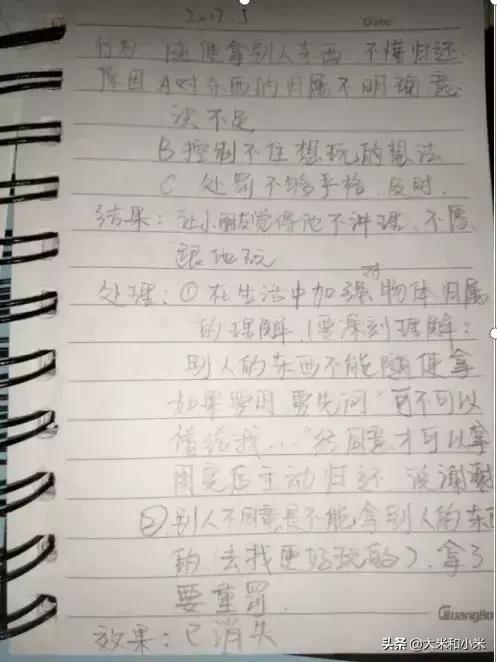 2017.5
Date:
行为：随便拿别人东西，不懂归还.
原因 A 对东西的归属不明确意
识不足
B 控制不住想玩的想法
C 处罚不够严格、及时.
结果：让小朋友觉得他不讲理、不愿
跟他玩
处理：①在生活中加强对物体归属
的理解（要深刻理解：
别人的东西不能随便拿
如果要用 要先问"可不可以
借给我…"经同意才可以拿
用完后主动归还 说谢谢
②别人不同意是不能拿别人的东西
的（去找更好玩的），拿了
要重罚.
效果：已消失
GuangBo
头条 @大米和小米